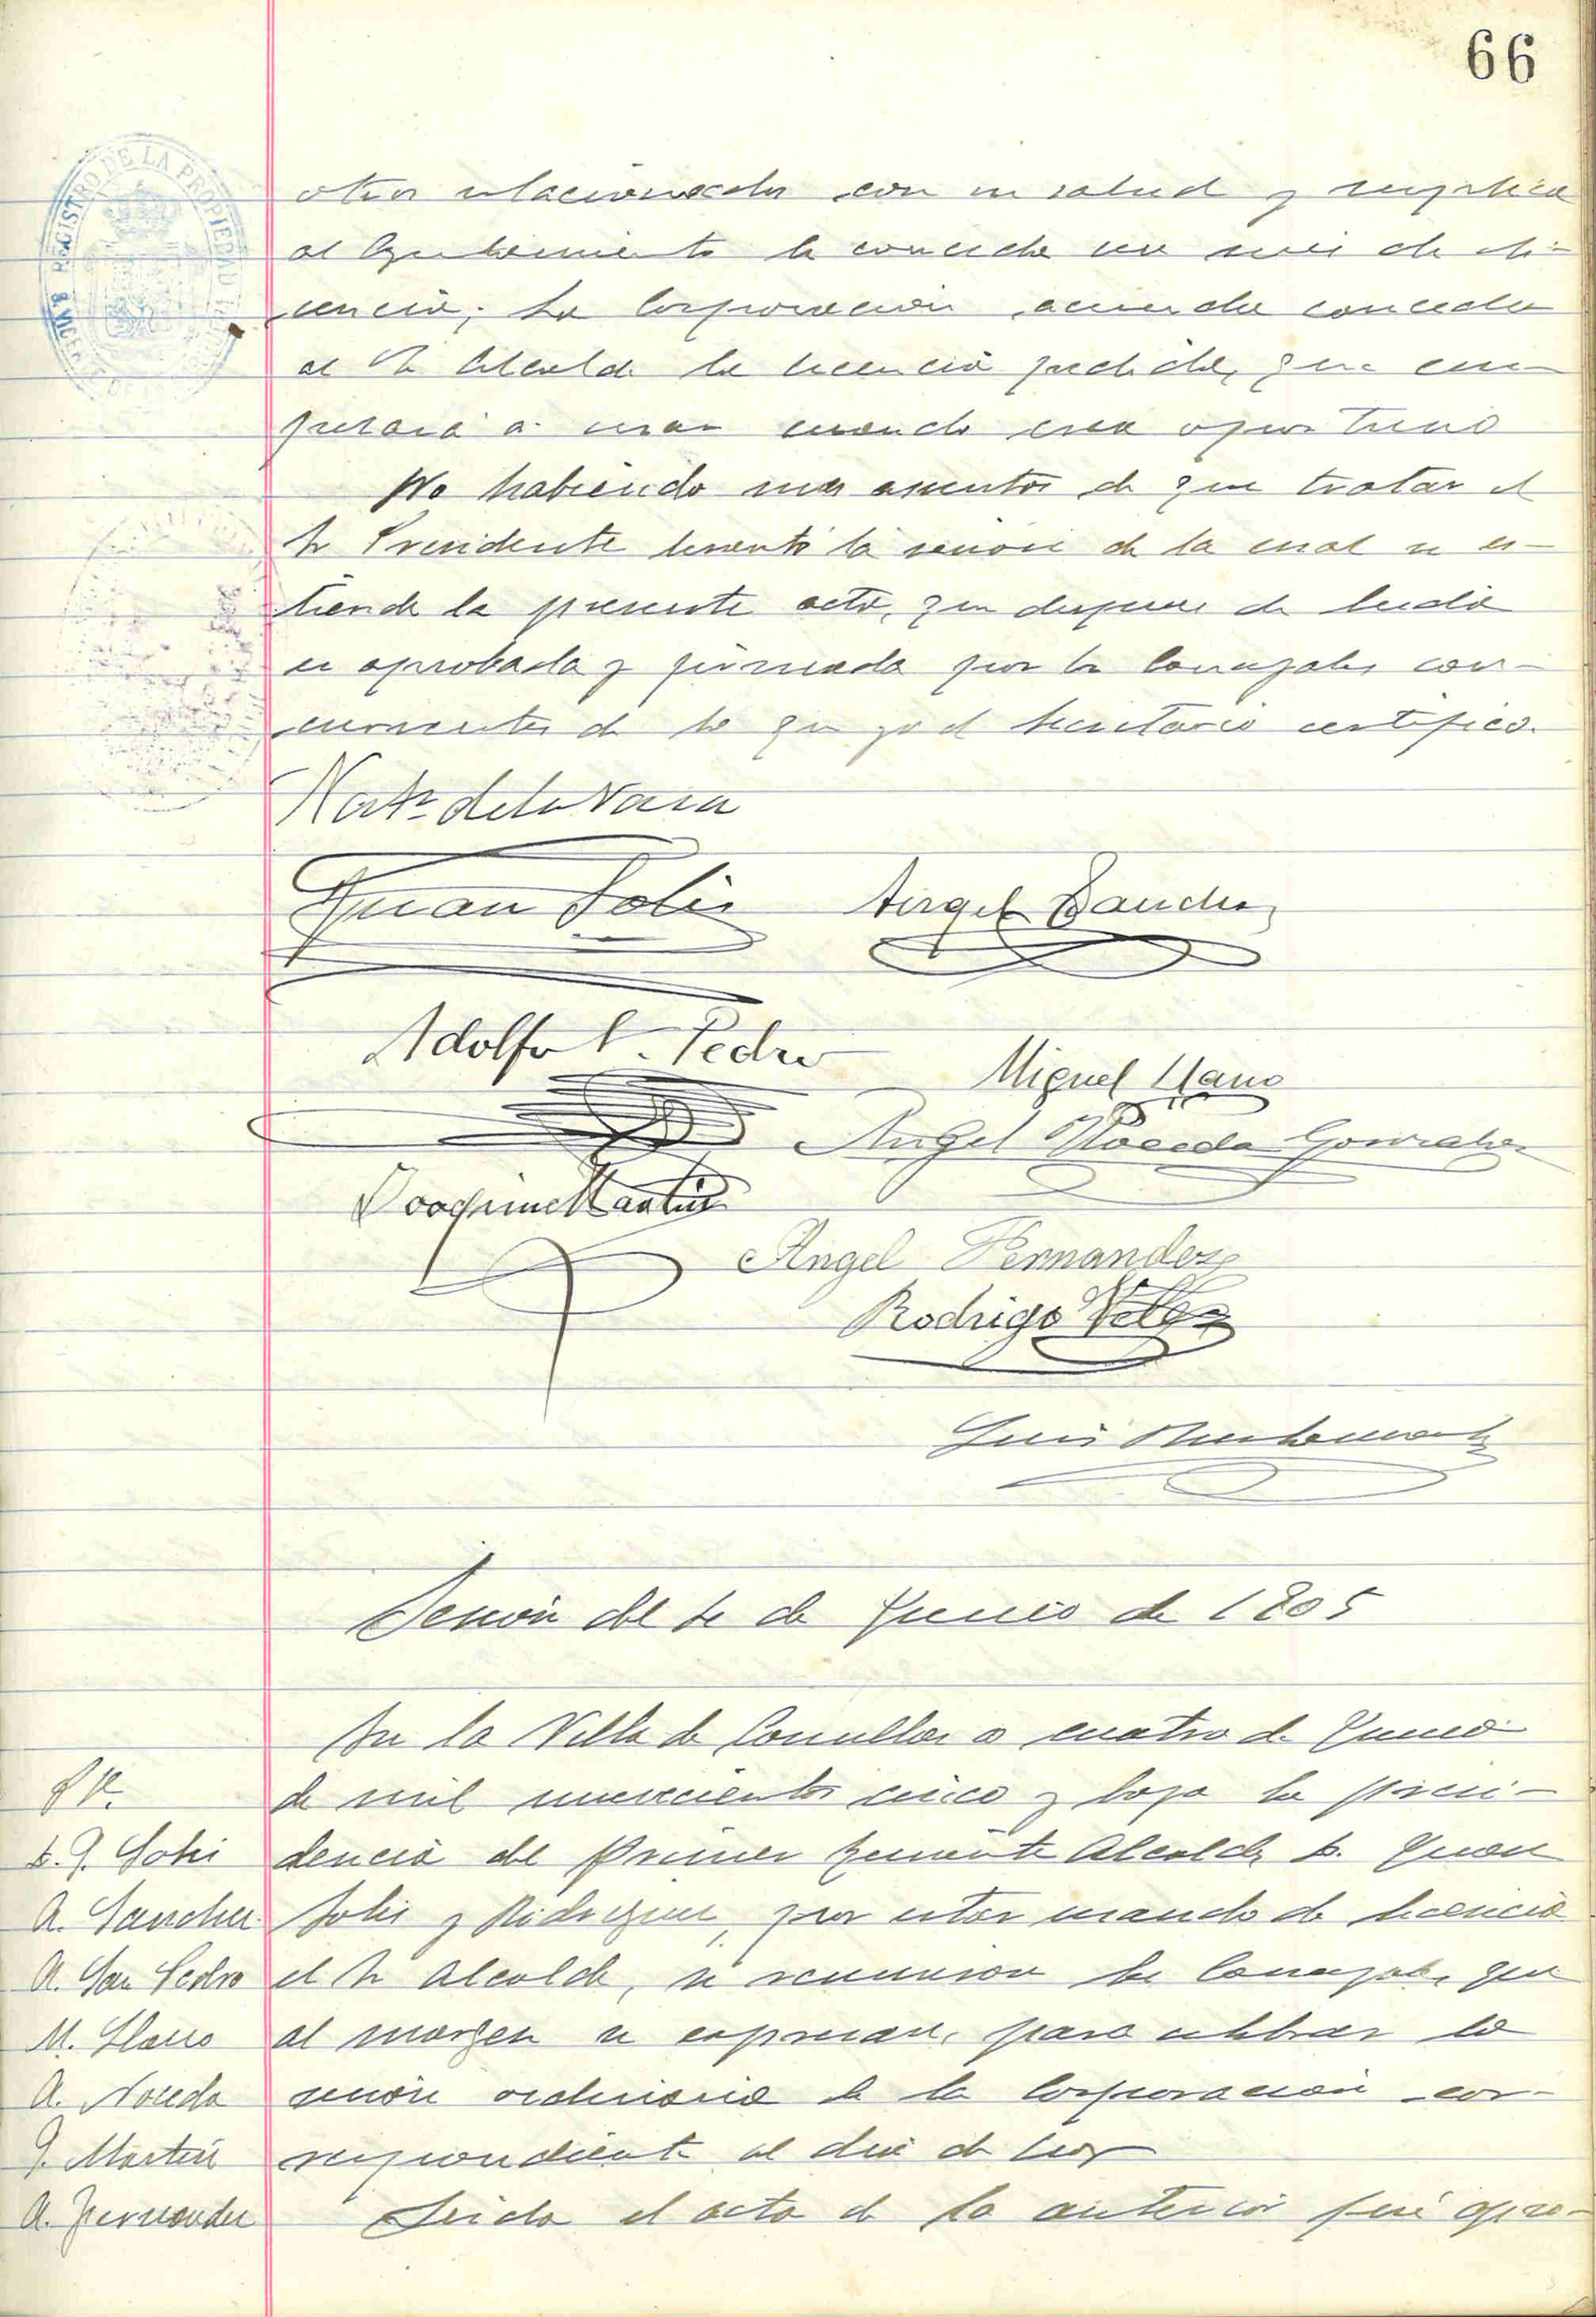 66
REGISTRO DE LA PROPIEDAD
otros relacionados con su salud y suplica
al Ayuntamiento le conceda un mes de li-
cencia; La Corporacion acuerda conceder
al Sr Alcalde la licencia pedida, que em-
pezará a usar cuando crea oportuno
No habiendo mas asuntos de que tratar el
Sr Presidente levantó la sesión de la cual se es-
tiende la presente acta, que despues de leida
es aprobada y firmada por los Concejales con-
currentes de lo que yo el Secretario certifico.
de la Vara
Juan Solis Angel Sanchez
Adolfo S. Pedro
Miguel Llano
Angel Noceda Gonzalez
Joaquin Martin
Angel Fernandez
Rodrigo Velez
Luis
Sesión del 4 de Junio de 1905
En la Villa de Comillas a cuatro de Junio
de mil novecientos cinco y bajo la presi-
dencia del primer Teniente Alcalde D. Juan
Solis y Rodriguez, por estar usando de licencia
el Sr Alcalde, se reunieron los Concejales que
al margen se expresan, para celebrar la
sesión ordinaria de la Corporación cor-
respondiente al dia de hoy
Leida el acta de la anterior fué apro-
D. J. Solis
A. Sanchez
A. San Pedro
M. Llano
A. Noceda
J. Martin
A. Fernandez